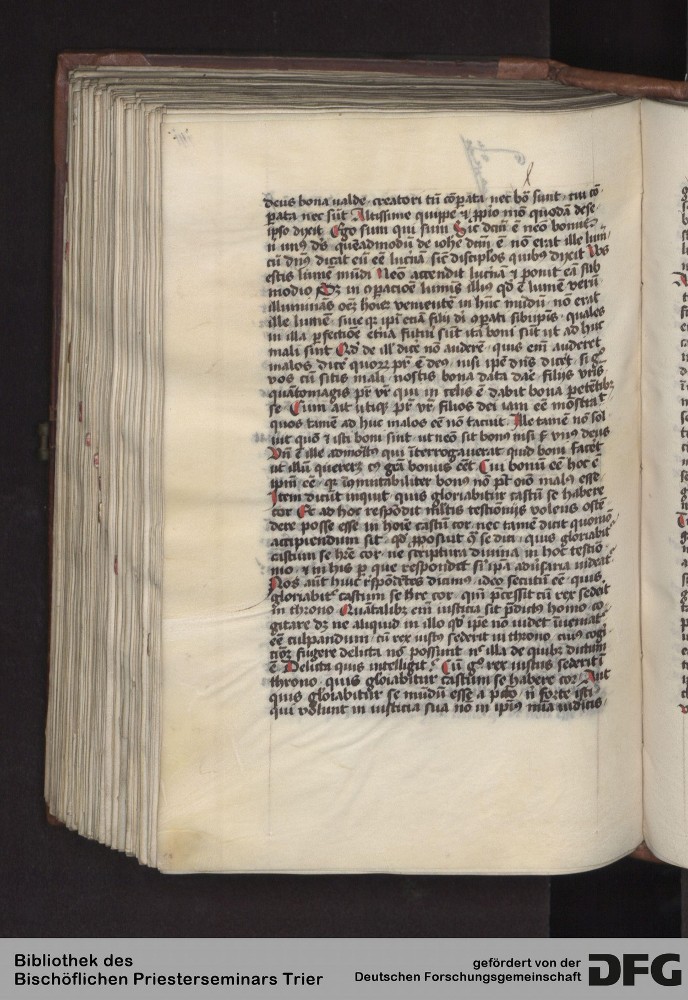 deus bona valde creatori tn̄ cōpata nec bō sunt
pata nec sūt Altissime quippe ⁊ ꝓpio mō quodā dese
ipso dixit Ego sum qui sum Sic dc̄m ē neō bonus
n unꝰ ds̄ quēadmodū de iohe dc̄m ē nō erat ille lum
cū dn̄s dicat eū eē lucn̄ā sic̄ disciplos quibꝰ dixit Vos
estis lumē mūdi Neō accendit lucn̄ā ⁊ ponit eā sub
modio Sꝫ in cꝑacioē lumīs illiꝰ qd̄ ē lumē verū
illumināns oēꝫ hoiēꝫ venientē in hūc mūdū nō erat
ille lumē siue qꝛ ipi etiā filij di ꝯpati sibiipsis quales
in illa ꝑfectiōe etn̄a futuri sūt ita boni sūt ut ad huc
mali sint Qd̄ de ill dice nō auderē quis em̄ auderet
malos dice quoꝝ pr̄ ē deꝰ nisi ipe dn̄s dicēt si gͦ
vos cū sitis mali nostis bona data dare filijs vrīs
quātomagis pr̄ vr̄ qui in celis ē dabit bona petētibꝫ
se Cum ait utiqꝫ pr̄ vr̄ filios dei iam eē mōstrat
quos tamē ad huc malos eē nō tacuit Ille tamē nō sol
uit quō ⁊ isti boni sint ut neō sit bonꝰ nisi vnꝰ deus
Vn̄ ē ille admoītꝰ qui īterrogauerat quid boni facēt
ut illū quereret cꝰ grā bonus eēt Cui bonū eē hoc ē
ipm̄ eē qꝛ īmutabiliter bonꝰ nō pt̄ oīō malꝰ esse
Item dicūt inquit quis gloriabitur castū se habere
cor Et ad hoc respōdit mltis testioniis volens ostē
dere posse esse in hoiē castū cor nec tamē dicit quomō
accipiendum sit qd̄ ꝓposuit q̄ se dici quis gloriabit
castum se hr̄e cor ne scriptura diuina in hoc testio
nio ⁊ in his ꝑ que respondet si ipā adūsaria videat
Nos aūt huic rn̄dētes dicimꝰ ideo secutū eē quis
gloriabitͬ castum se hr̄e cor qm̄ p̄cessit cū rex sedeit
in throno Quātalibꝫ em̄ iusticia sit p̄dictꝰ homo co
gitare dꝫ ne aliquid in illo qd̄ ipe nō videt īueniat
eē culpandum cū rex iustꝰ sederit in throno cuiꝰ cog
cōꝫ fugere delicta nō possunt nͨ illa de quibꝫ dictum
ē Delicta quis intelligit Cū gͦ rex iustus sederit ī
throno quis gloiabitur castum se habere cor Aut
quis gloiabitur se mūdū esse a pctō n̄ forte isti
qui volunt in iusticia sua nō in ipiꝰ mīa iudicis
Bibliothek des
Bischöflichen Priesterseminars Trier
gefördert von der
Deutschen Forschungsgemeinschaft
DFG